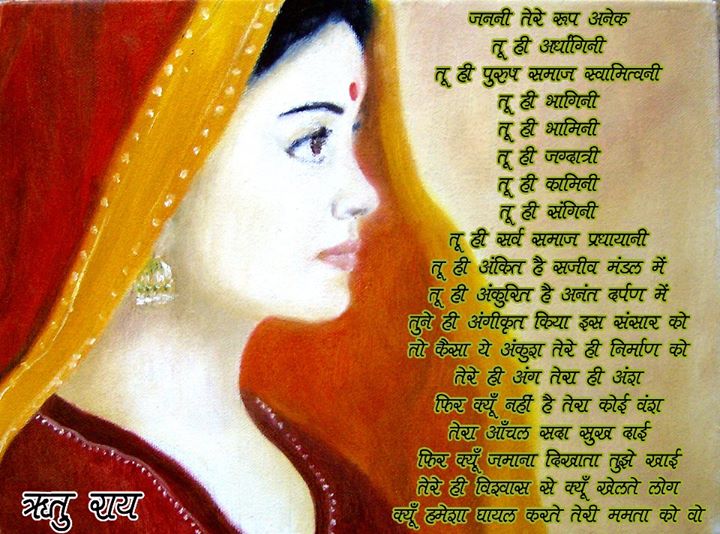 जननी तेरे रूप अनेक
तू ही अर्धांगिनी
तू ही पुरुष समाज स्वामित्वनी
तू ही भागिनी
तू ही भामिनी
तू ही जगदात्री
तू ही कामिनी
तू ही संगिनी
तू ही सर्व समाज प्रधायानी
तू ही अंकित है सजीव मंडल में
तू ही अंकुरित है अनंत दर्पण में
तुने ही अंगीकृत किया इस संसार को
तो कैसा ये अंकुश तेरे ही निर्माण को
तेरे ही अंग तेरा ही अंश
फिर क्यूँ नहीं है तेरा कोई वंश
तेरा आँचल सदा सुख दाई
फिर क्यूँ जमाना दिखाता तुझे खाई
तेरे ही विश्वास से क्यूँ खेलते लोग
क्यूँ हमेशा घायल करते तेरी ममता को वो
ऋतु राय